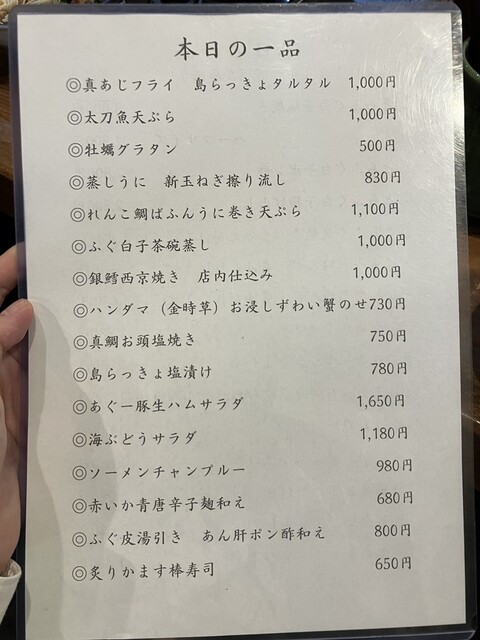 本日の一品
◎真あじフライ 島らっきょタルタル 1,000円
◎太刀魚天ぷら 1,000円
◎牡蠣グラタン 500円
◎蒸しうに 新玉ねぎ擦り流し 830円
◎れんこ鯛ばふんうに巻き天ぷら 1,100円
◎ふぐ白子茶碗蒸し 1,000円
◎銀鱈西京焼き 店内仕込み 1,000円
◎ハンダマ（金時草）お浸しずわい蟹のせ730円
◎真鯛お頭塩焼き 750円
◎島らっきょ塩漬け 780円
◎あぐー豚生ハムサラダ 1,650円
◎海ぶどうサラダ 1,180円
◎ソーメンチャンプルー 980円
◎赤いか青唐辛子麹和え 680円
◎ふぐ皮湯引き あん肝ポン酢和え 800円
◎炙りかます棒寿司 650円